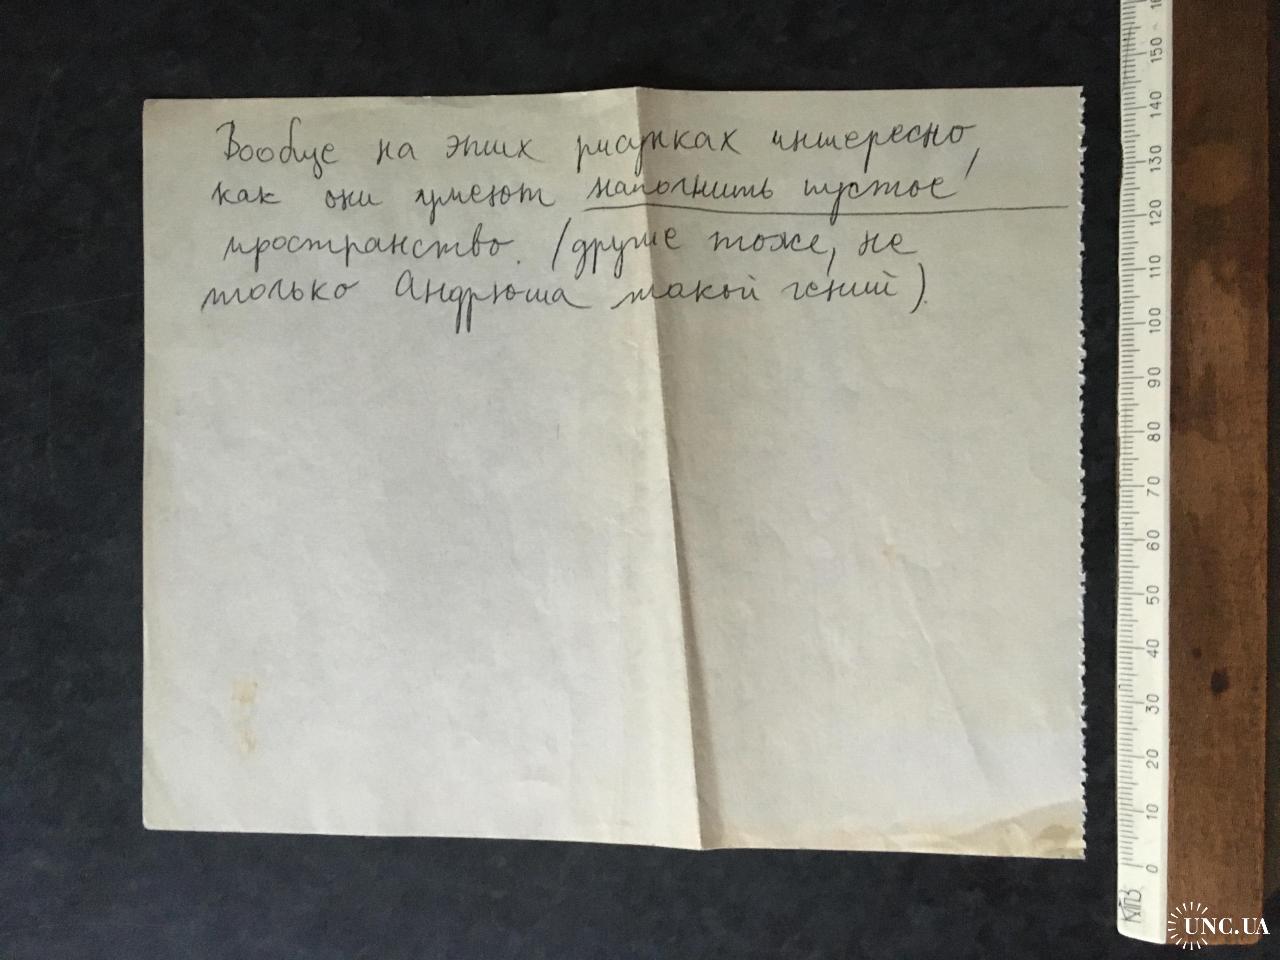 Вообще на этих рисунках интересно,
как они умеют наполнить пустое
пространство. (другие тоже, не
только Андрюша такой гений).
150
140
130
120
110
100
90
80
70
60
50
40
30
20
10
0
UNC.UA